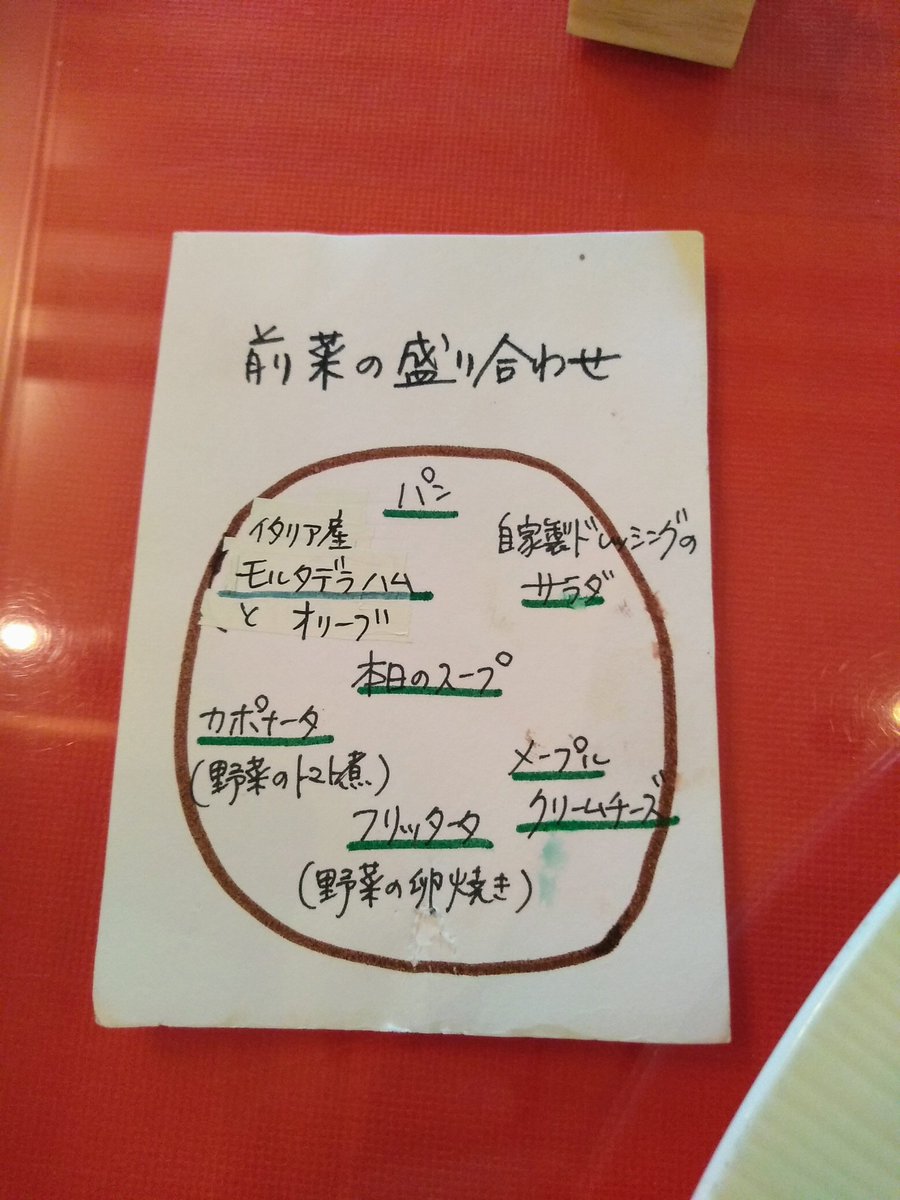 前菜の盛り合わせ
パン
イタリア産
モルタデラハム
と オリーブ
自家製ドレッシングの
サラダ
本日のスープ
カポナータ
(野菜のトマト煮)
メープル
クリームチーズ
フリッタータ
(野菜の卵焼き)